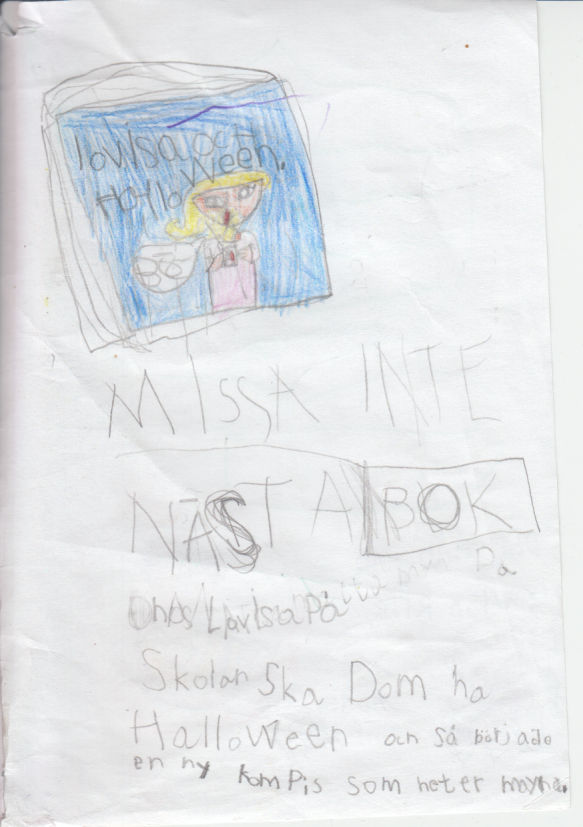 lowisa och
Halloween.
Bö
MISSA INTE
NÄSTA BOK
På
Lovisa på
Skolan Ska Dom ha
Halloween och så började
en ny kompis som heter mayna.